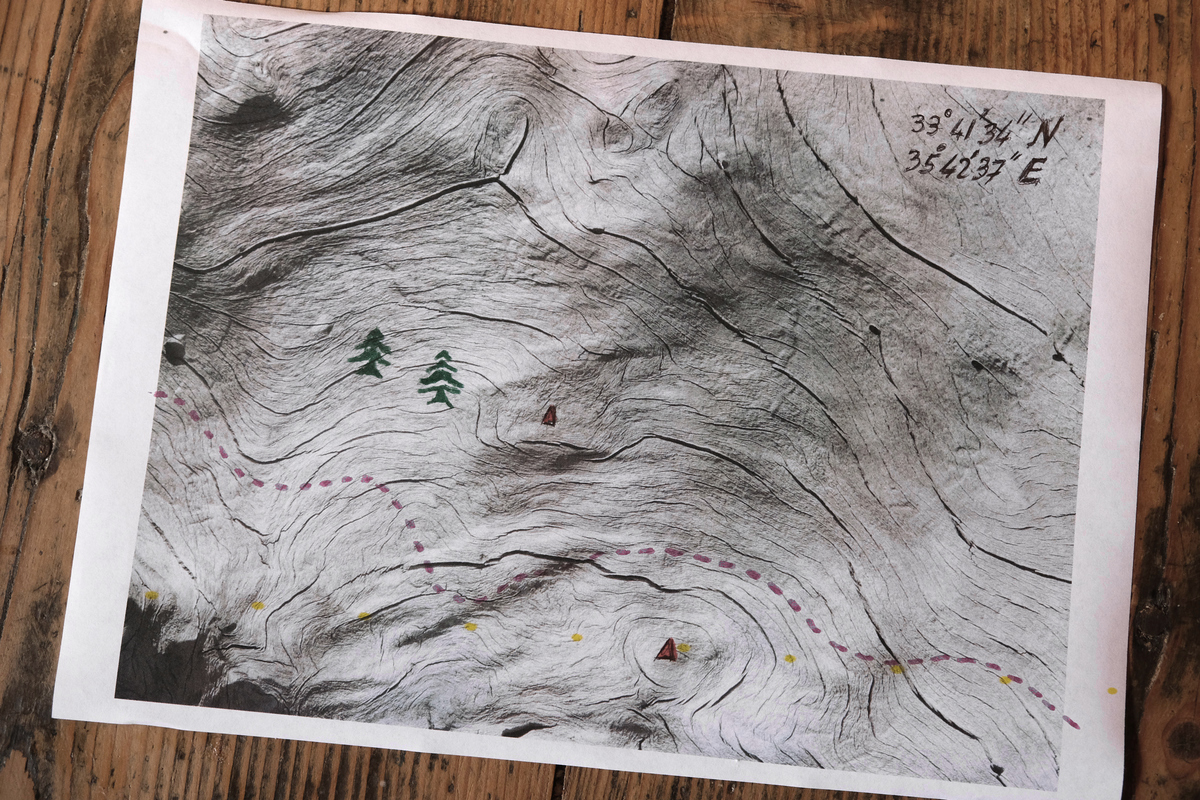 33° 41' 34" N
35° 42' 37" E